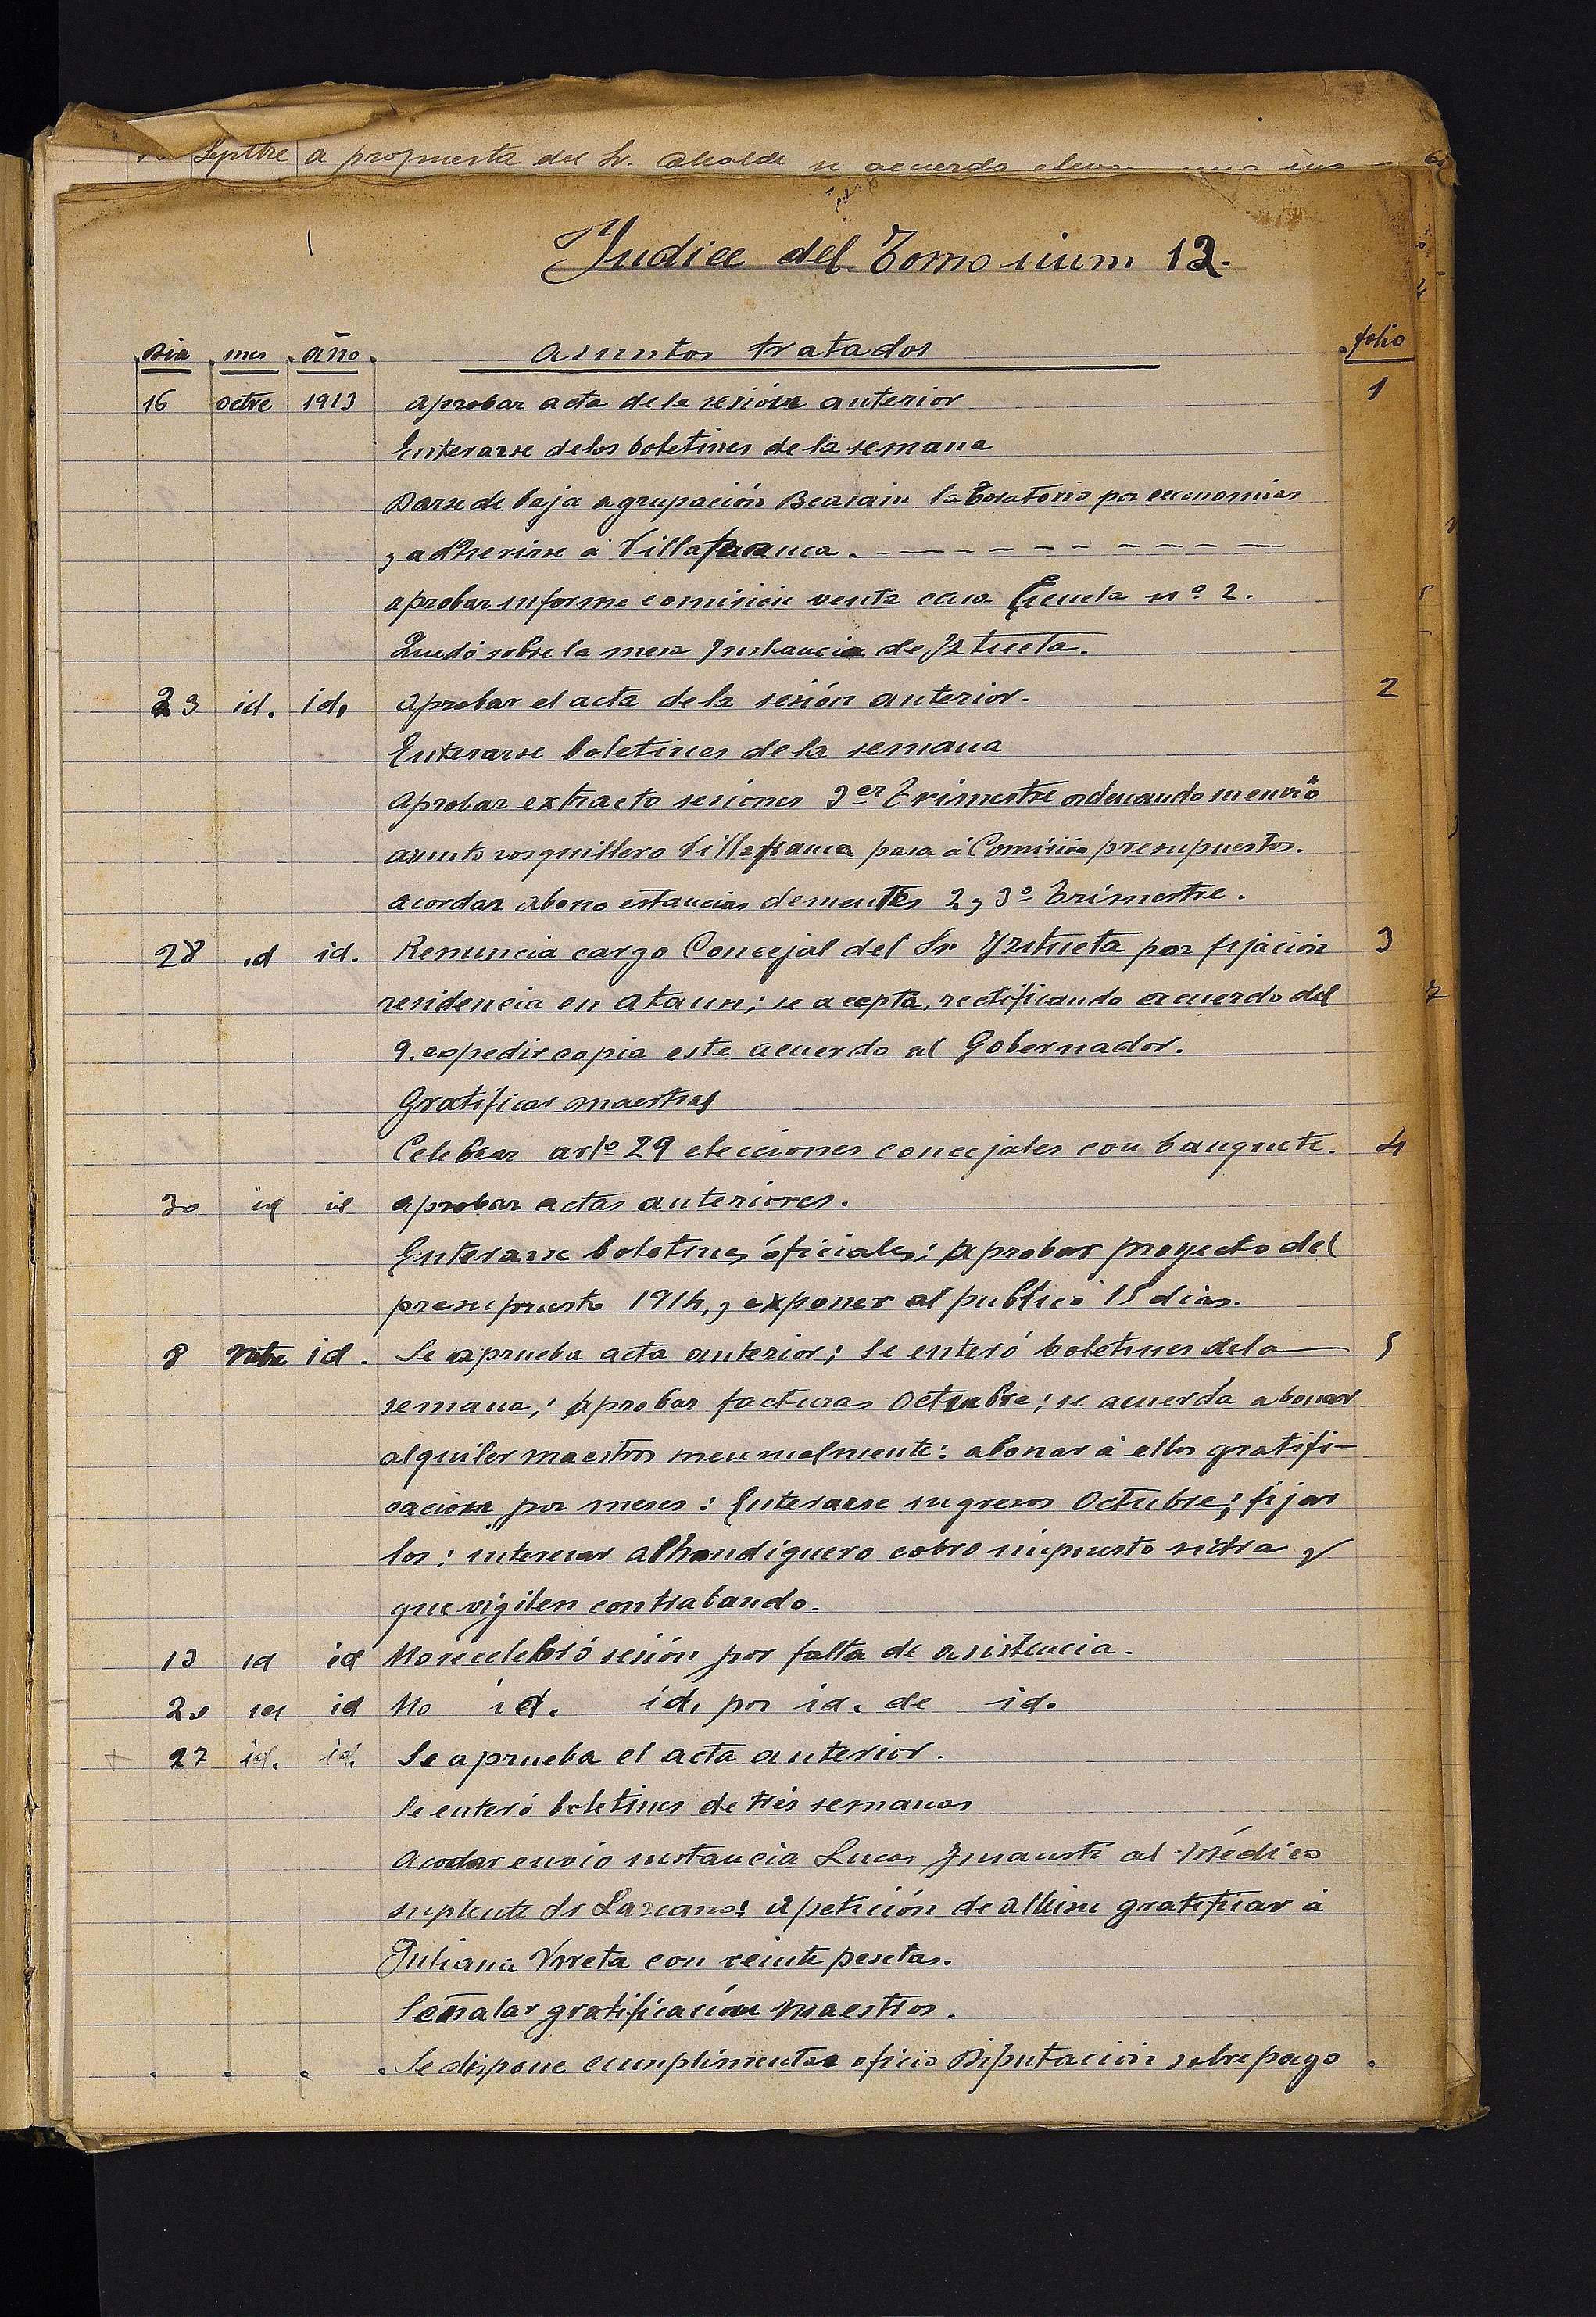 Septbre a propuesta del Sr. Alcalde se acuerda
Indice del Tomo núm 12.
Dia mes año asuntos tratados folio
16 octre 1913 aprobar acta de la sesión anterior 1
Enterarse de los boletines de la semana
Darse de baja agrupación Beasain laboratorio por economias
y adherirse á Villafranca.
aprobar informe comisión venta casa Escuela nº 2.
Quedó sobre la mesa Instancia de Iztueta.
23 id. id. aprobar el acta de la sesión anterior. 2
Enterarse boletines de la semana
Aprobar extracto sesiones 3er Trimestre ordenando su envio
asunto rosquillero Villafranca pasa á Comisión presupuestos.
acordar abono estancias dementes 2 y 3º trimestre.
28 id id. Renuncia cargo Concejal del Sr. Iztueta por fijación 3
residencia en Ataun; se acepta, rectificando acuerdo del
9. expedir copia este acuerdo al Gobernador.
Gratificar maestras
Celebrar artº 29 elecciones concejales con banquete. 4
30 id id aprobar actas anteriores.
Enterarse boletines oficiales; Aprobar proyecto del
presupuesto 1914, y exponer al publico 15 dias.
8 Nbre id. Se aprueba acta anterior; Se enteró boletines de la 5
semana; Aprobar facturas Octubre; se acuerda abonar
alquiler maestros mensualmente: abonar á ellos gratifi-
cación por meses: Enterarse ingresos Octubre; fijar
los: interesar alhondiguero cobro impuesto sidra y
que vigilen contrabando.
13 id id No se celebró sesión por falta de asistencia.
20 id id No id. id. por id. de id.
+ 27 id. id. Se aprueba el acta anterior.
Se enteró boletines de tres semanas
Acordar envio instancia Lucas al Médico
suplente de Lazcano: A petición de Albisu gratificar á
Juliana Urreta con veinte pesetas.
Señalar gratificación Maestros.
Se dispone cumplimentar oficio Diputación sobre pago